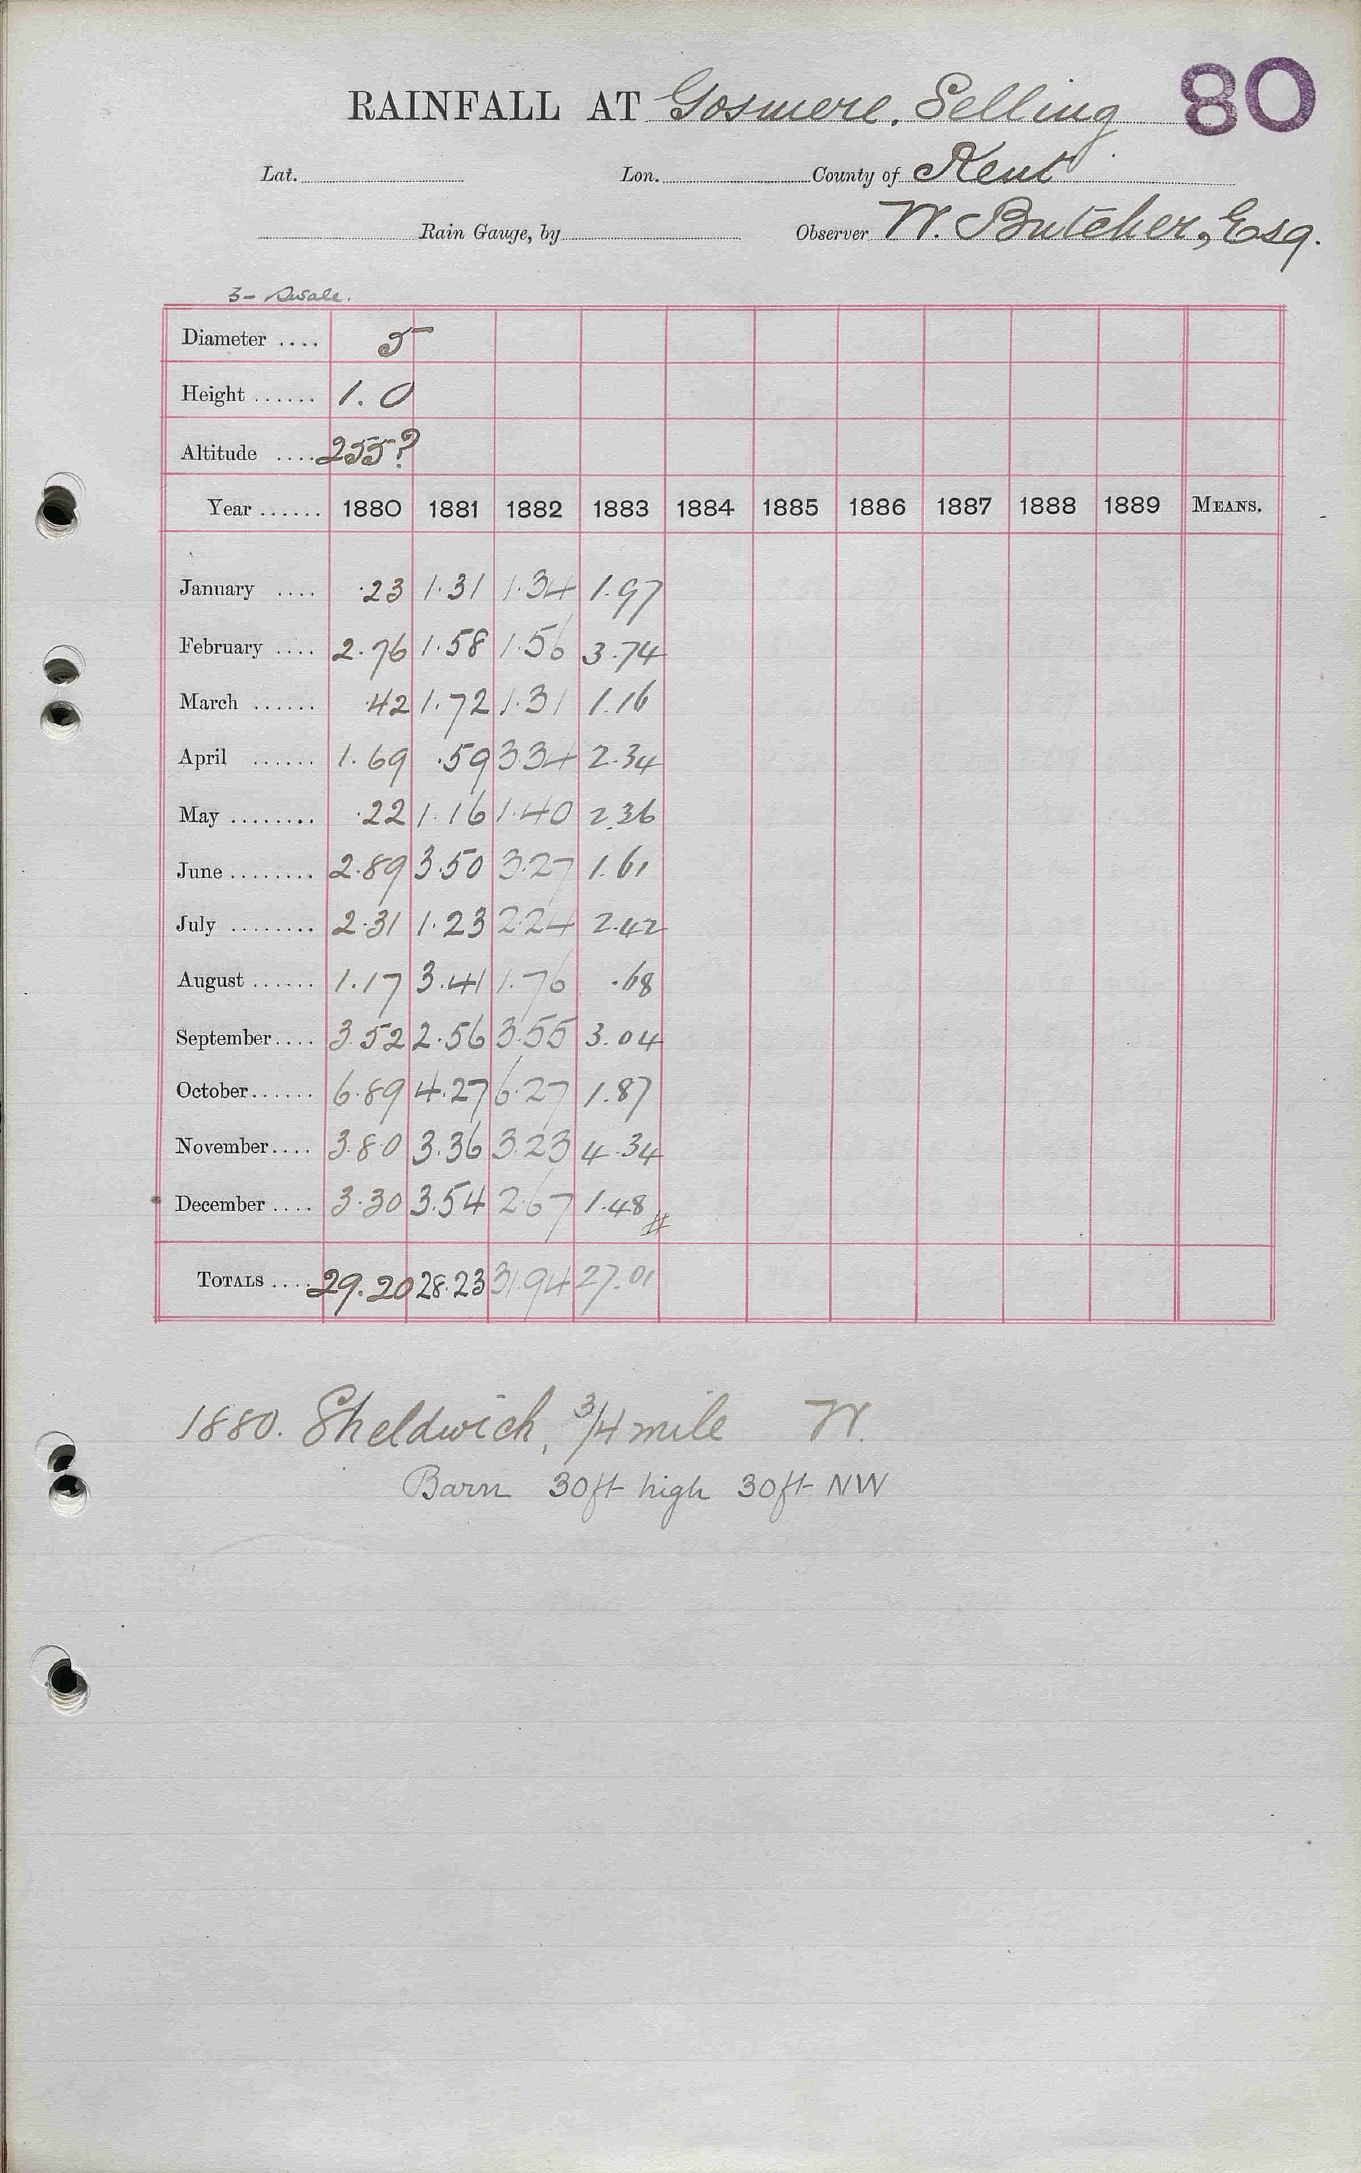 RAINFALL AT Gosmere, Selling 80
Lat. Lon. County of Kent
Rain Gauge, by Observer W. Butcher, Esq.
3-
Diameter .... 5
Height ...... 1.0
Altitude .... 255?
Year ...... 1880 1881 1882 1883 1884 1885 1886 1887 1888 1889 MEANS.
January .... .23 1.31 1.34 1.97
February .... 2.76 1.58 1.56 3.74
March ...... .42 1.72 1.31 1.16
April ...... 1.69 .59 3.34 2.34
May ........ .22 1.16 1.40 2.36
June ........ 2.89 3.50 3.27 1.61
July ........ 2.31 1.23 2.24 2.42
August ...... 1.17 3.41 1.76 .68
September.... 3.52 2.56 3.55 3.04
October...... 6.89 4.27 6.27 1.87
November.... 3.80 3.36 3.23 4.34
December .... 3.30 3.54 2.67 1.48
TOTALS .... 29.20 28.23 31.94 27.01
1880. Sheldwich, 3/4 mile W.
Barn 30ft high 30ft NW